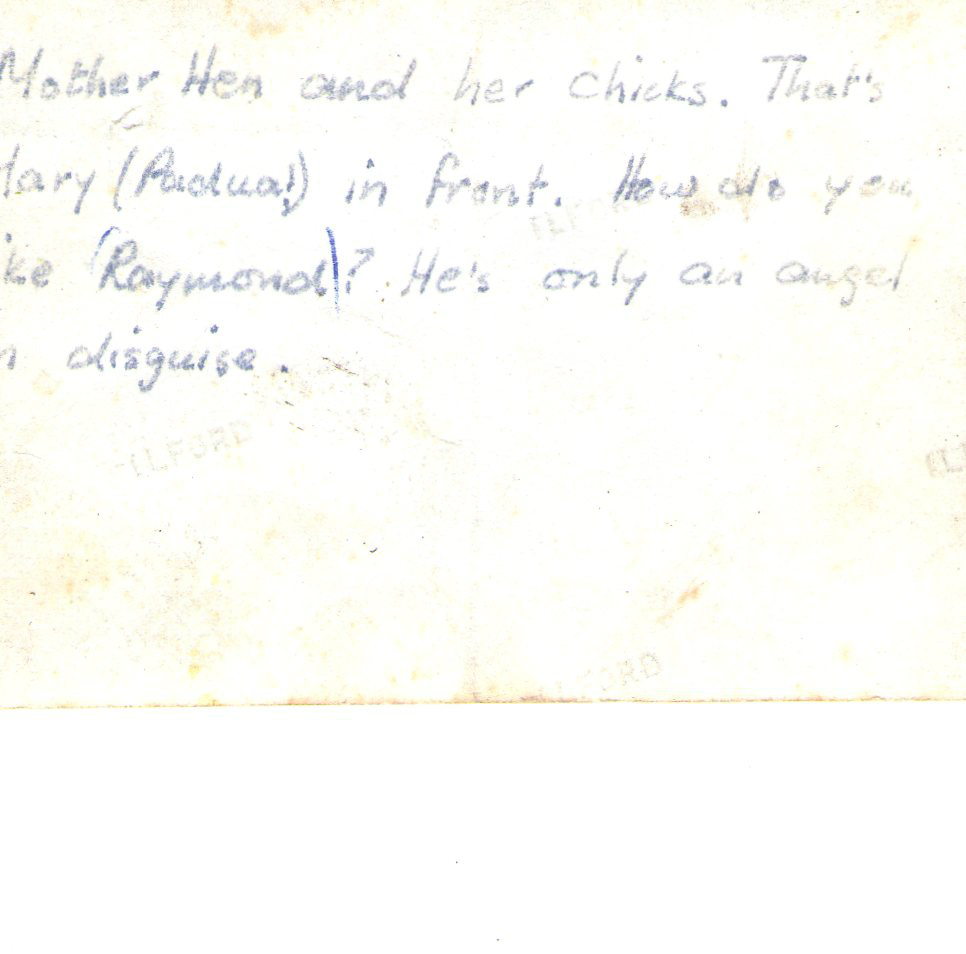 Mother Hen and her chicks. That's
Mary (Padua!) in front. How do you
ike (Raymond)? He's only an angel
n disguise.
ILFORD